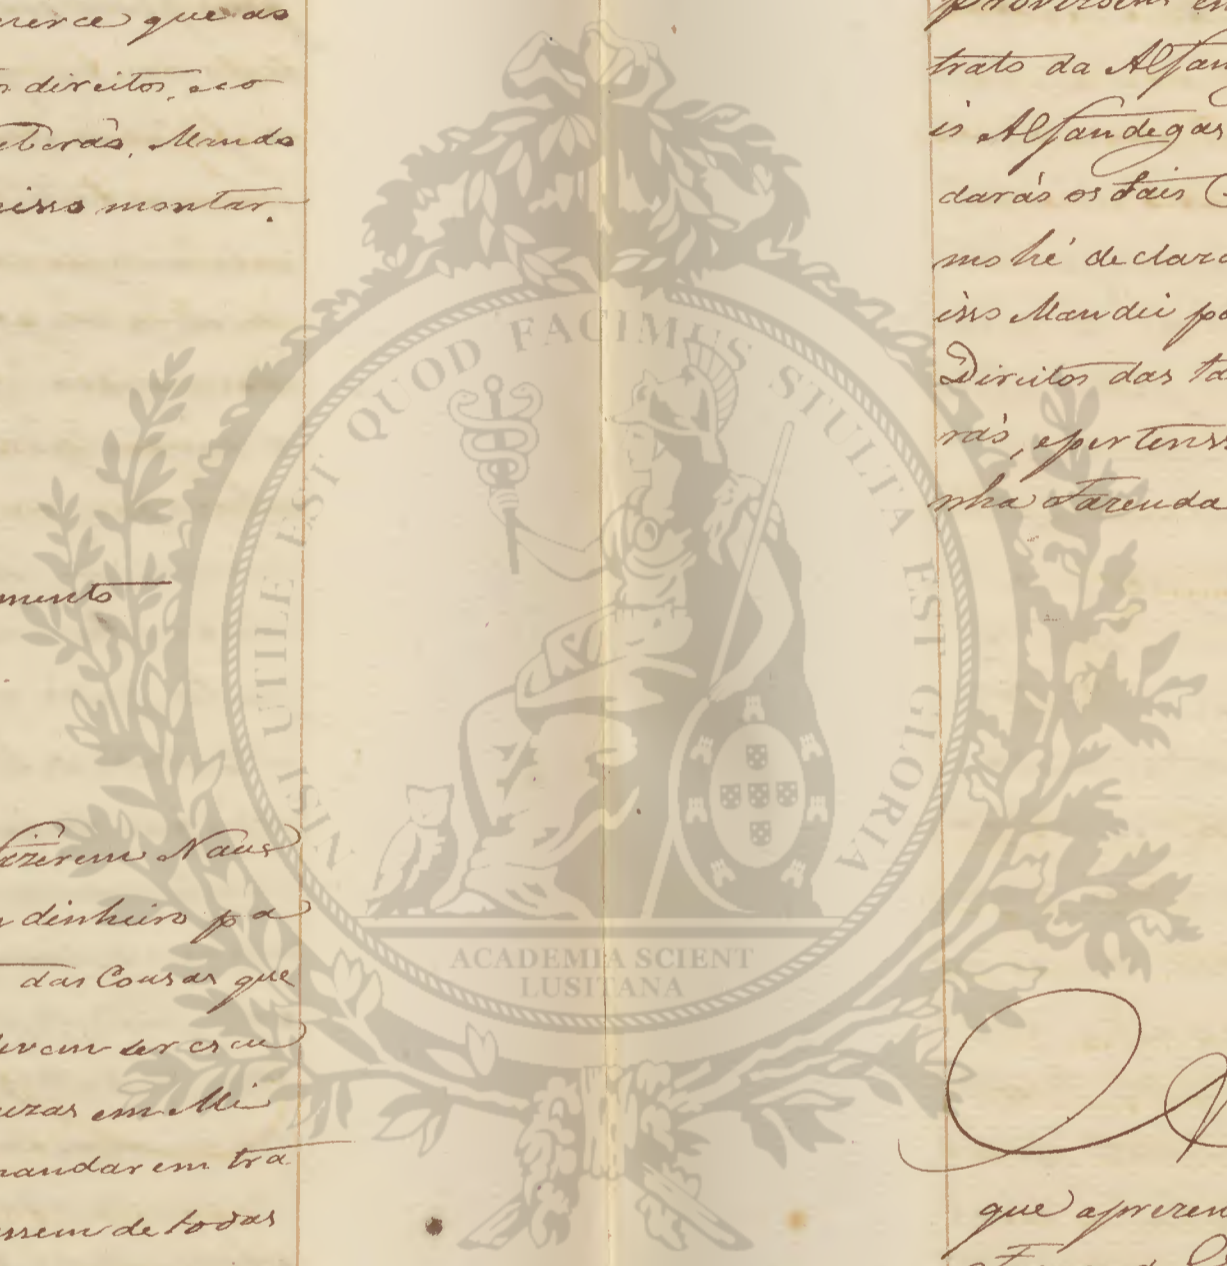 merce que as
direitos, eo
Mando
nisso montar.
mento
fizerem Naus
dinheiro pa
das Cousas que
devem ser escu
em Mi
mandarem tra
de todas
NISI UTILE EST QUOD FACIMUS STULTA EST GLORIA
ACADEMIA SCIENT
LUSITANA
trato da Alfan
is Alfandegas
darás os tais
mo hé declara
isso Mandei pa
Direitos das ta
rás, e pertenss
nha Fazenda
que aprezen